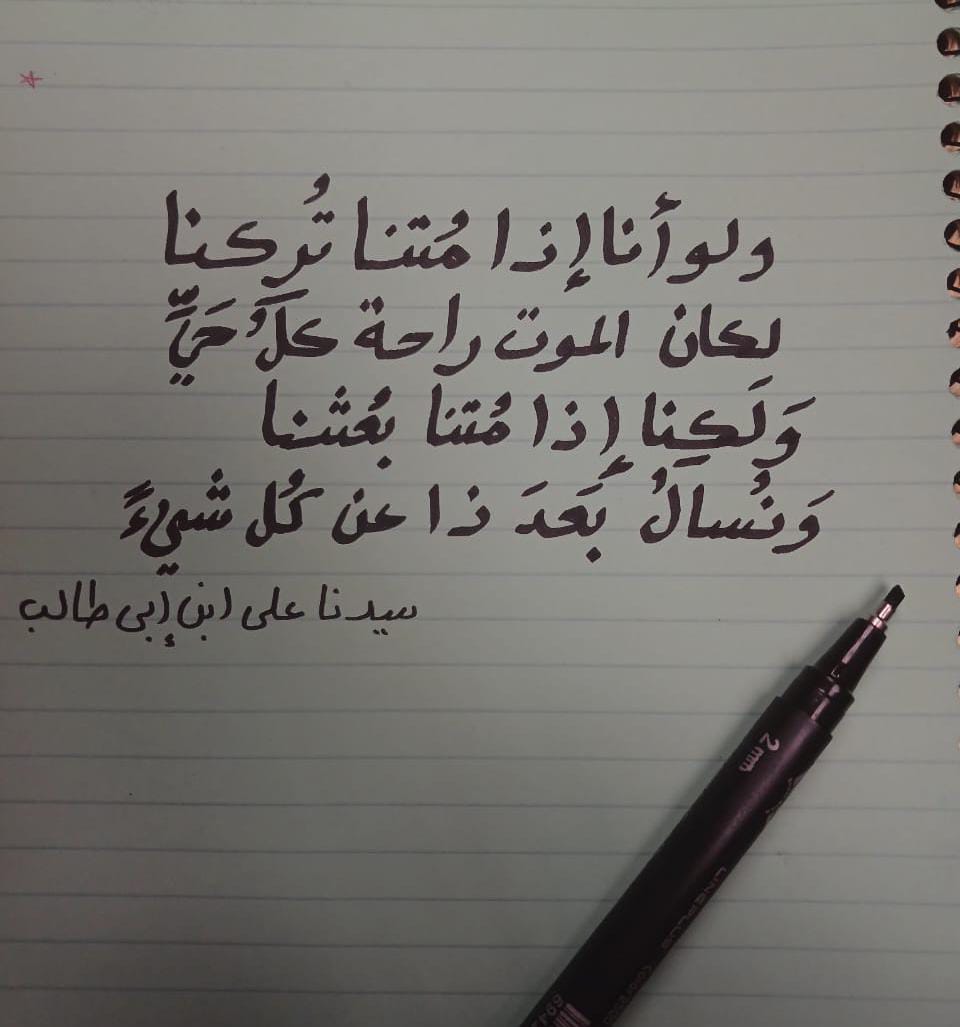 ولو أنا إذا مُتنا تُركنا
لكان الموت راحة كلَُ حَيٍّ
وَلَكِنا إذا مُتنا بعُثنا
وَنُسالُ بَعَدَ ذا عن كُل شيءً
سيدنا على ابن إبى طالب
2 mm
LINEPLUS